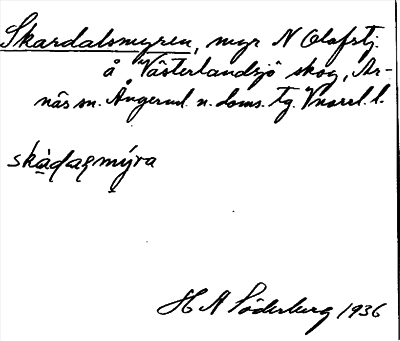 Skardalsmyren, myr N Olofstj.
å Västerlandsjö skog, Ar-
näs sn. Ångerml. n. doms. tg. Vnorrl. l.
skàdaʂmýra
H A Söderberg 1936